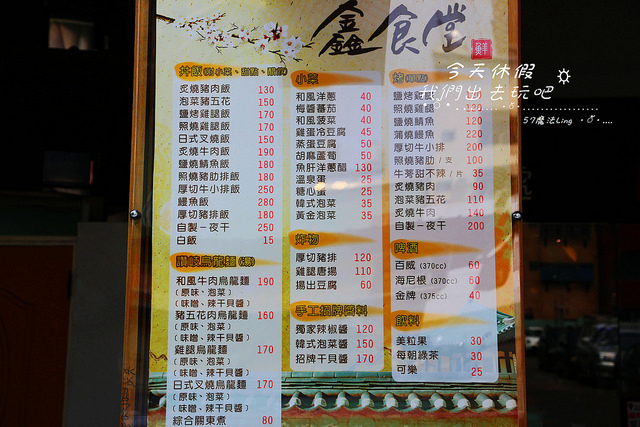 鑫食堂
鮮
今天休假
我們出去玩吧
57魔法Ling
丼飯(附小菜、甜點、酸湯)
炙燒豬肉飯 130
泡菜豬五花 150
鹽烤雞腿飯 170
照燒雞腿飯 170
日式叉燒飯 150
炙燒牛肉飯 190
鹽燒鯖魚飯 180
照燒豬肋排飯 180
厚切牛小排飯 250
鰻魚飯 280
厚切豬排飯 180
自製一夜干 250
白飯 15
讚岐烏龍麵(湯)
和風牛肉烏龍麵 190
(原味、泡菜)
(味噌、辣干貝醬)
豬五花肉烏龍麵 160
(原味、泡菜)
(味噌、辣干貝醬)
雞腿烏龍麵 170
(原味、泡菜)
(味噌、辣干貝醬)
日式叉燒烏龍麵 170
(原味、泡菜)
(味噌、辣干貝醬)
綜合關東煮 80
小菜
和風洋蔥 40
梅醬蕃茄 40
和風菠菜 40
雞蛋冷豆腐 45
蒸蛋豆腐 50
胡麻蘆筍 50
魚肝洋蔥醋 130
溫泉蛋 25
糖心蛋 25
韓式泡菜 35
黃金泡菜 35
炸物
厚切豬排 120
雞腿唐揚 110
揚出豆腐 60
手工招牌醬料
獨家辣椒醬 120
韓式泡菜醬 150
招牌干貝醬 170
烤(單點)
鹽烤雞腿
照燒雞腿 120
鹽燒鯖魚 120
蒲燒鰻魚 220
厚切牛小排 200
照燒豬肋/支 100
牛蒡甜不辣/片 35
炙燒豬肉 90
泡菜豬五花 110
炙燒牛肉 140
自製一夜干 200
啤酒
百威 (370cc) 60
海尼根 (370cc) 60
金牌 (375cc) 40
飲料
美粒果 30
每朝綠茶 30
可樂 25